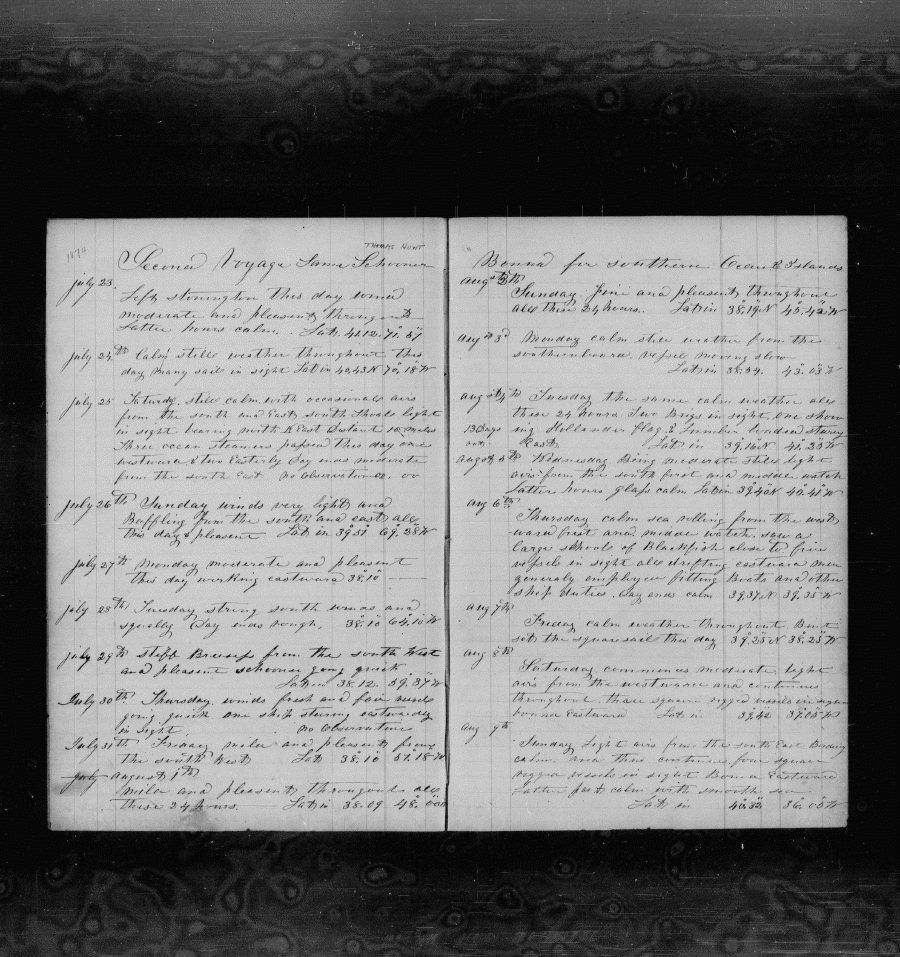 1874
THOMAS HUNT
Second Voyage Same Schooner
july 23
Left stonington this day wind
moderate and pleasant througout
Latter hours calm. Lat. 41.12. 71.57
july 24th Calm still weather throughout this
day Many sail in sight Lat in 40,43N 70,18W
july 25 Saturdy still calm with occasional airs
from the south and East, south Shoals light
in sight bearing north & East Distant 10 miles
Three ocean steamers passed this day one
westward & two Easterly Day ends moderate
from the south East no Observations.
july 26th Sunday winds very light and
Baffling from the south and east all
this day & pleasent Lat in 39,51 69,28W
july 27th Monday moderate and pleasent
this day working eastward 38,10
july 28th Tuesday strong south winds and
squelly Day ends rough, 38.10 64,10W
july 29th stiff Breeses from the south West
and pleasent schooner going quick
Lat in 38.12. 59.37W
July 30th Thursday winds fresh and fair
going quick one ship stering eastwardly
in sight no Observation
July 31th Friday mild and pleasent from
the south West Lat 38.10 51.18W
july august 1th
mild and pleasent, througout all
these 24 hours. Lat in 38.09 48.00
Bound for southern Ocean & Islands
aug 2th
Sunday Fine and pleasent throughout
all these 24 hours. Lat in 38,19N 45,42W
aug 3d Monday calm still weather from the
southernboard, vessel moving slow
Lat in 38.54. 43.03W
aug 4th Tuesday the same calm weather all
these 24 hours. Two Brigs in sight, One show
13 Days
out
ing Hollander flag & Lumber loaded
East, Lat in 39,16N 41,25W
august 5th Wednesday Being moderate still light
airs from the south first and middle watch
Latter hours glass calm Lat in 39,40N 40,41W
aug 6th
Thursday calm sea rolling from the west
ward first and middle watch. saw a
large schools of Blackfish close to five
vessels in sight all drifting eastward men
generaly employed fitting Boats and other
ship duties. Day ends calm 39,37N 39,35W
aug 7th
Friday calm weather throughout Bent
set the squaresail this day 39,25N 38,25W
aug 8th
Saturday commences moderate light
airs from the westward and continues
throughout three square rigged vessels in sight
bound Eastward Lat in 39,42 37.05W
aug 9th
Sunday Light airs from the south East Being
calm. and thus continues four square
rigged vessels in sight Bound Eastward
Latter part calm with smooth sea
Lat in 40,32 36.05W